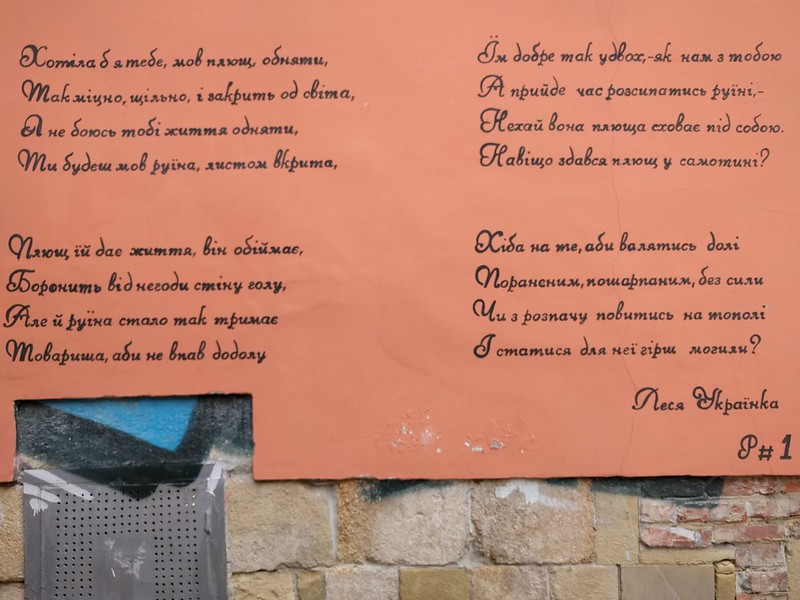 Хотіла б я тебе, мов плющ, обняти,
Так міцно, щільно, і закрить од світа,
Я не боюсь тобі життя одняти,
Ти будеш мов руїна, листом вкрита,
Плющ їй дає життя, він обіймає,
Боронить від негоди стіну голу,
Але й руїна стало так тримає
Товариша, аби не впав додолу
Їм добре так удвох,-як нам з тобою
А прийде час розсипатись руїні,-
Нехай вона плюща сховає під собою.
Навіщо здався плющ у самотині?
Хіба на те, аби валятись долі
Пораненим, пошарпаним, без сили
Чи з розпачу повитись на тополі
І статися для неї гірш могили?
Леся Українка
P#1